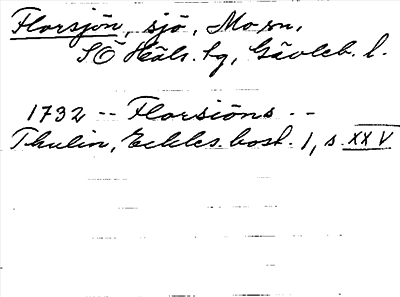 Florsjön, sjö, Mo sn,
SÖ Häls. tg, Gävleb. l.
1732 -- Florsiöns --
Thulin, Eckles. bost. 1, s. XXV